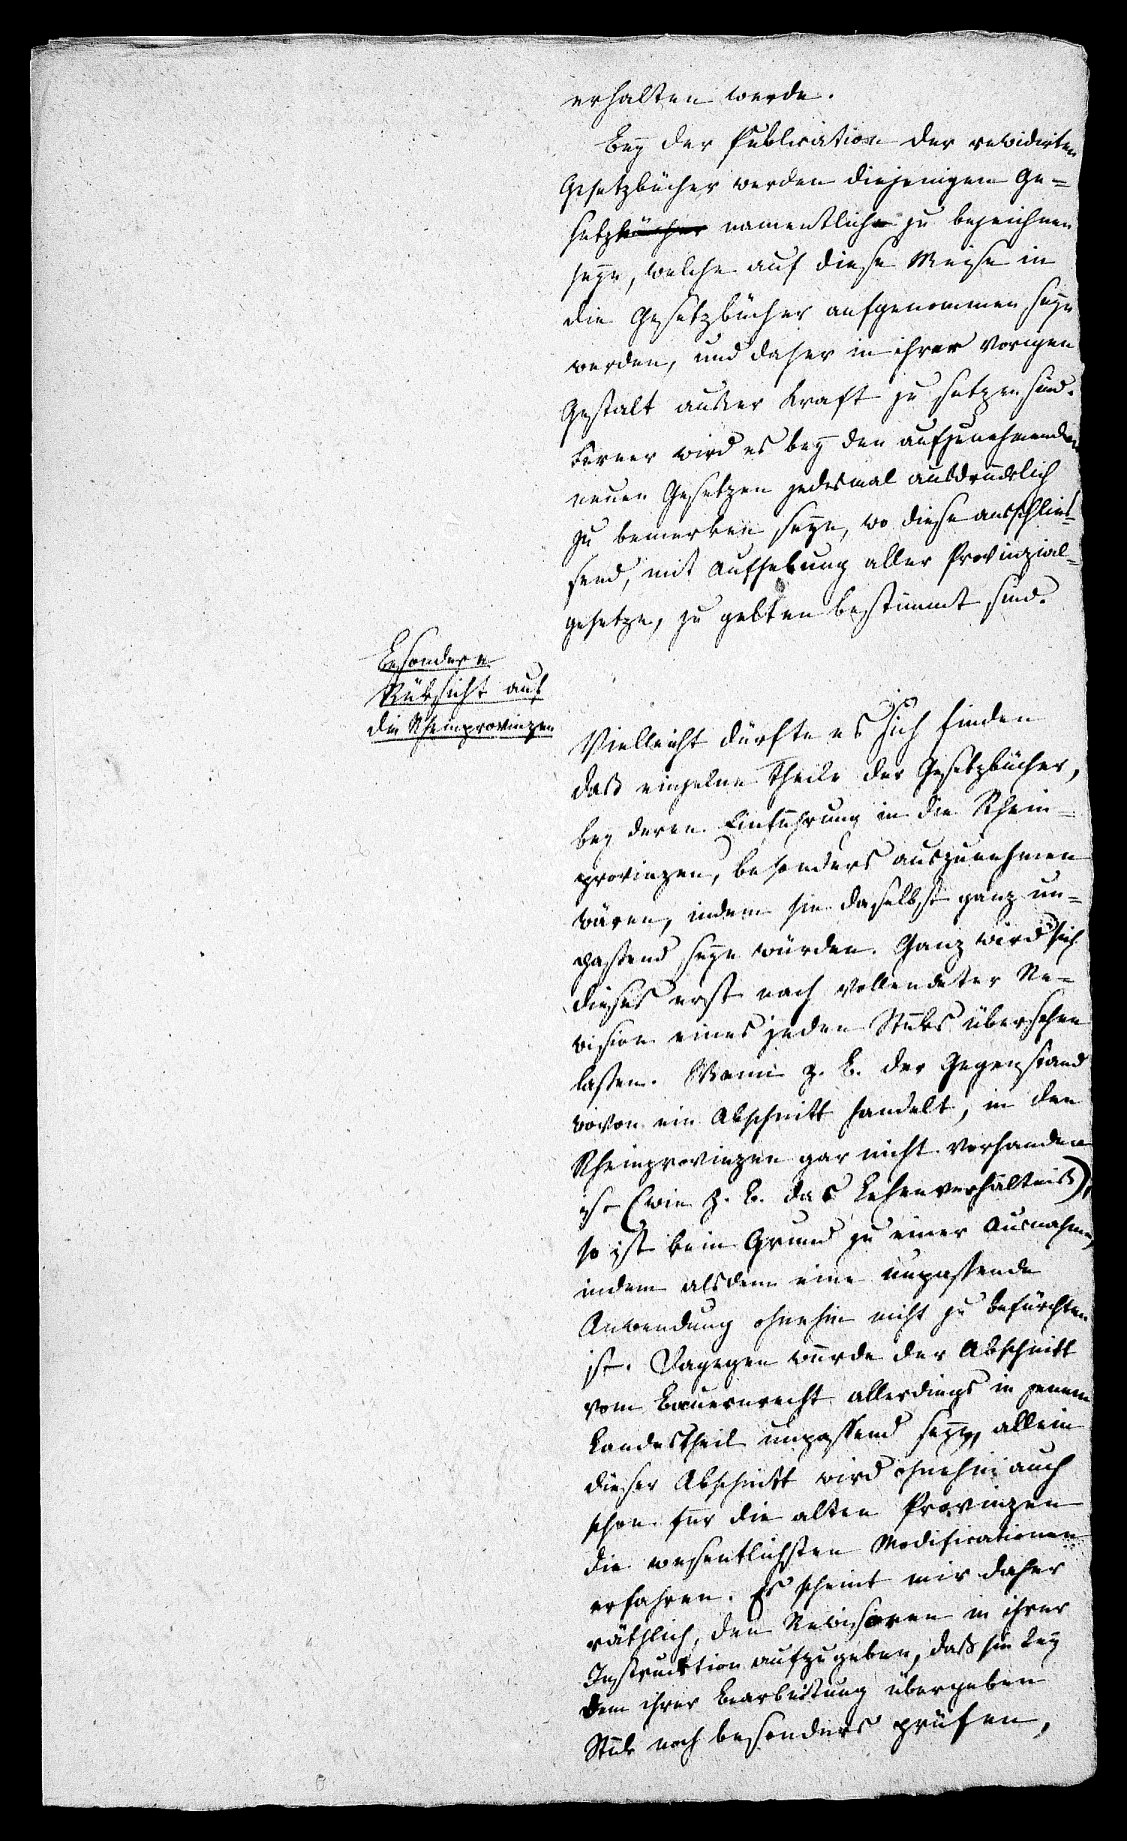 erhalten werde.
Bey der Publication der revidirten
Gesetzbücher werden diejenigen Ge-
setze namentlich zu bezeichnen
seyn, welche auf diese Weise in
die Gesetzbücher aufgenommen seyn
werden, und daher in ihrer vorigen
Gestalt ausser Kraft zu setzen sind.
Ferner wird es bey den aufzunehmenden
neuen Gesetzen jedesmal ausdrücklich
zu bemerken seyn, wo diese ausschlies-
send, mit Aufhebung aller Provinzial-
gesetze, zu gelten bestimmt sind.
Besondere
Rüksicht auf
die Rheinprovinzen
Vielleicht dürfte es sich finden
daß einzelne Theile der Gesetzbücher,
bey deren Einführung in die Rhein-
provinzen, besonders auszunehmen
wären, indem sie daselbst ganz un-
passend seyn würden. Ganz wird sich
dieses erst nach vollendeter Re-
vision eines jeden Stüks übersehen
lassen. Wenn z. B. der Gegenstand
wovon ein Abschnitt handelt, in den
Rheinprovinzen gar nicht vorhanden
ist (wie z. B. das Lehenverhältniß),
so ist kein Grund zu einer Ausnahme,
indem alsdenn eine unpassende
Anwendung ohnehin nicht zu befürchten
ist. Dagegen würde der Abschnitt
vom Bauernrecht allerdings in jenem
Landestheil unpassend seyn, allein
dieser Abschnitt wird ohnehin auch
schon für die alten Provinzen
die wesentlichsten Modificationen
erfahren. Es scheint mir daher
räthlich, den Revisoren in ihrer
Instruction aufzugeben, daß sie bey
dem ihrer Bearbeitung übergeben
Stük noch besonders prüfen,